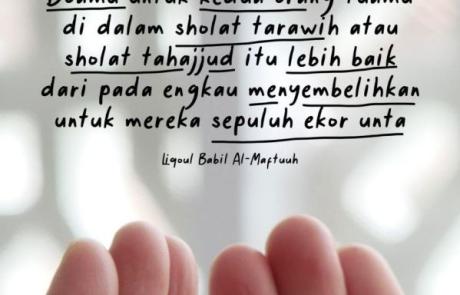 Doamu untuk kedua orang tuamu
di dalam sholat tarawih atau
sholat tahajjud itu lebih baik
dari pada engkau menyembelihkan
untuk mereka sepuluh ekor unta
Liqoul Babil Al-Maftuuh